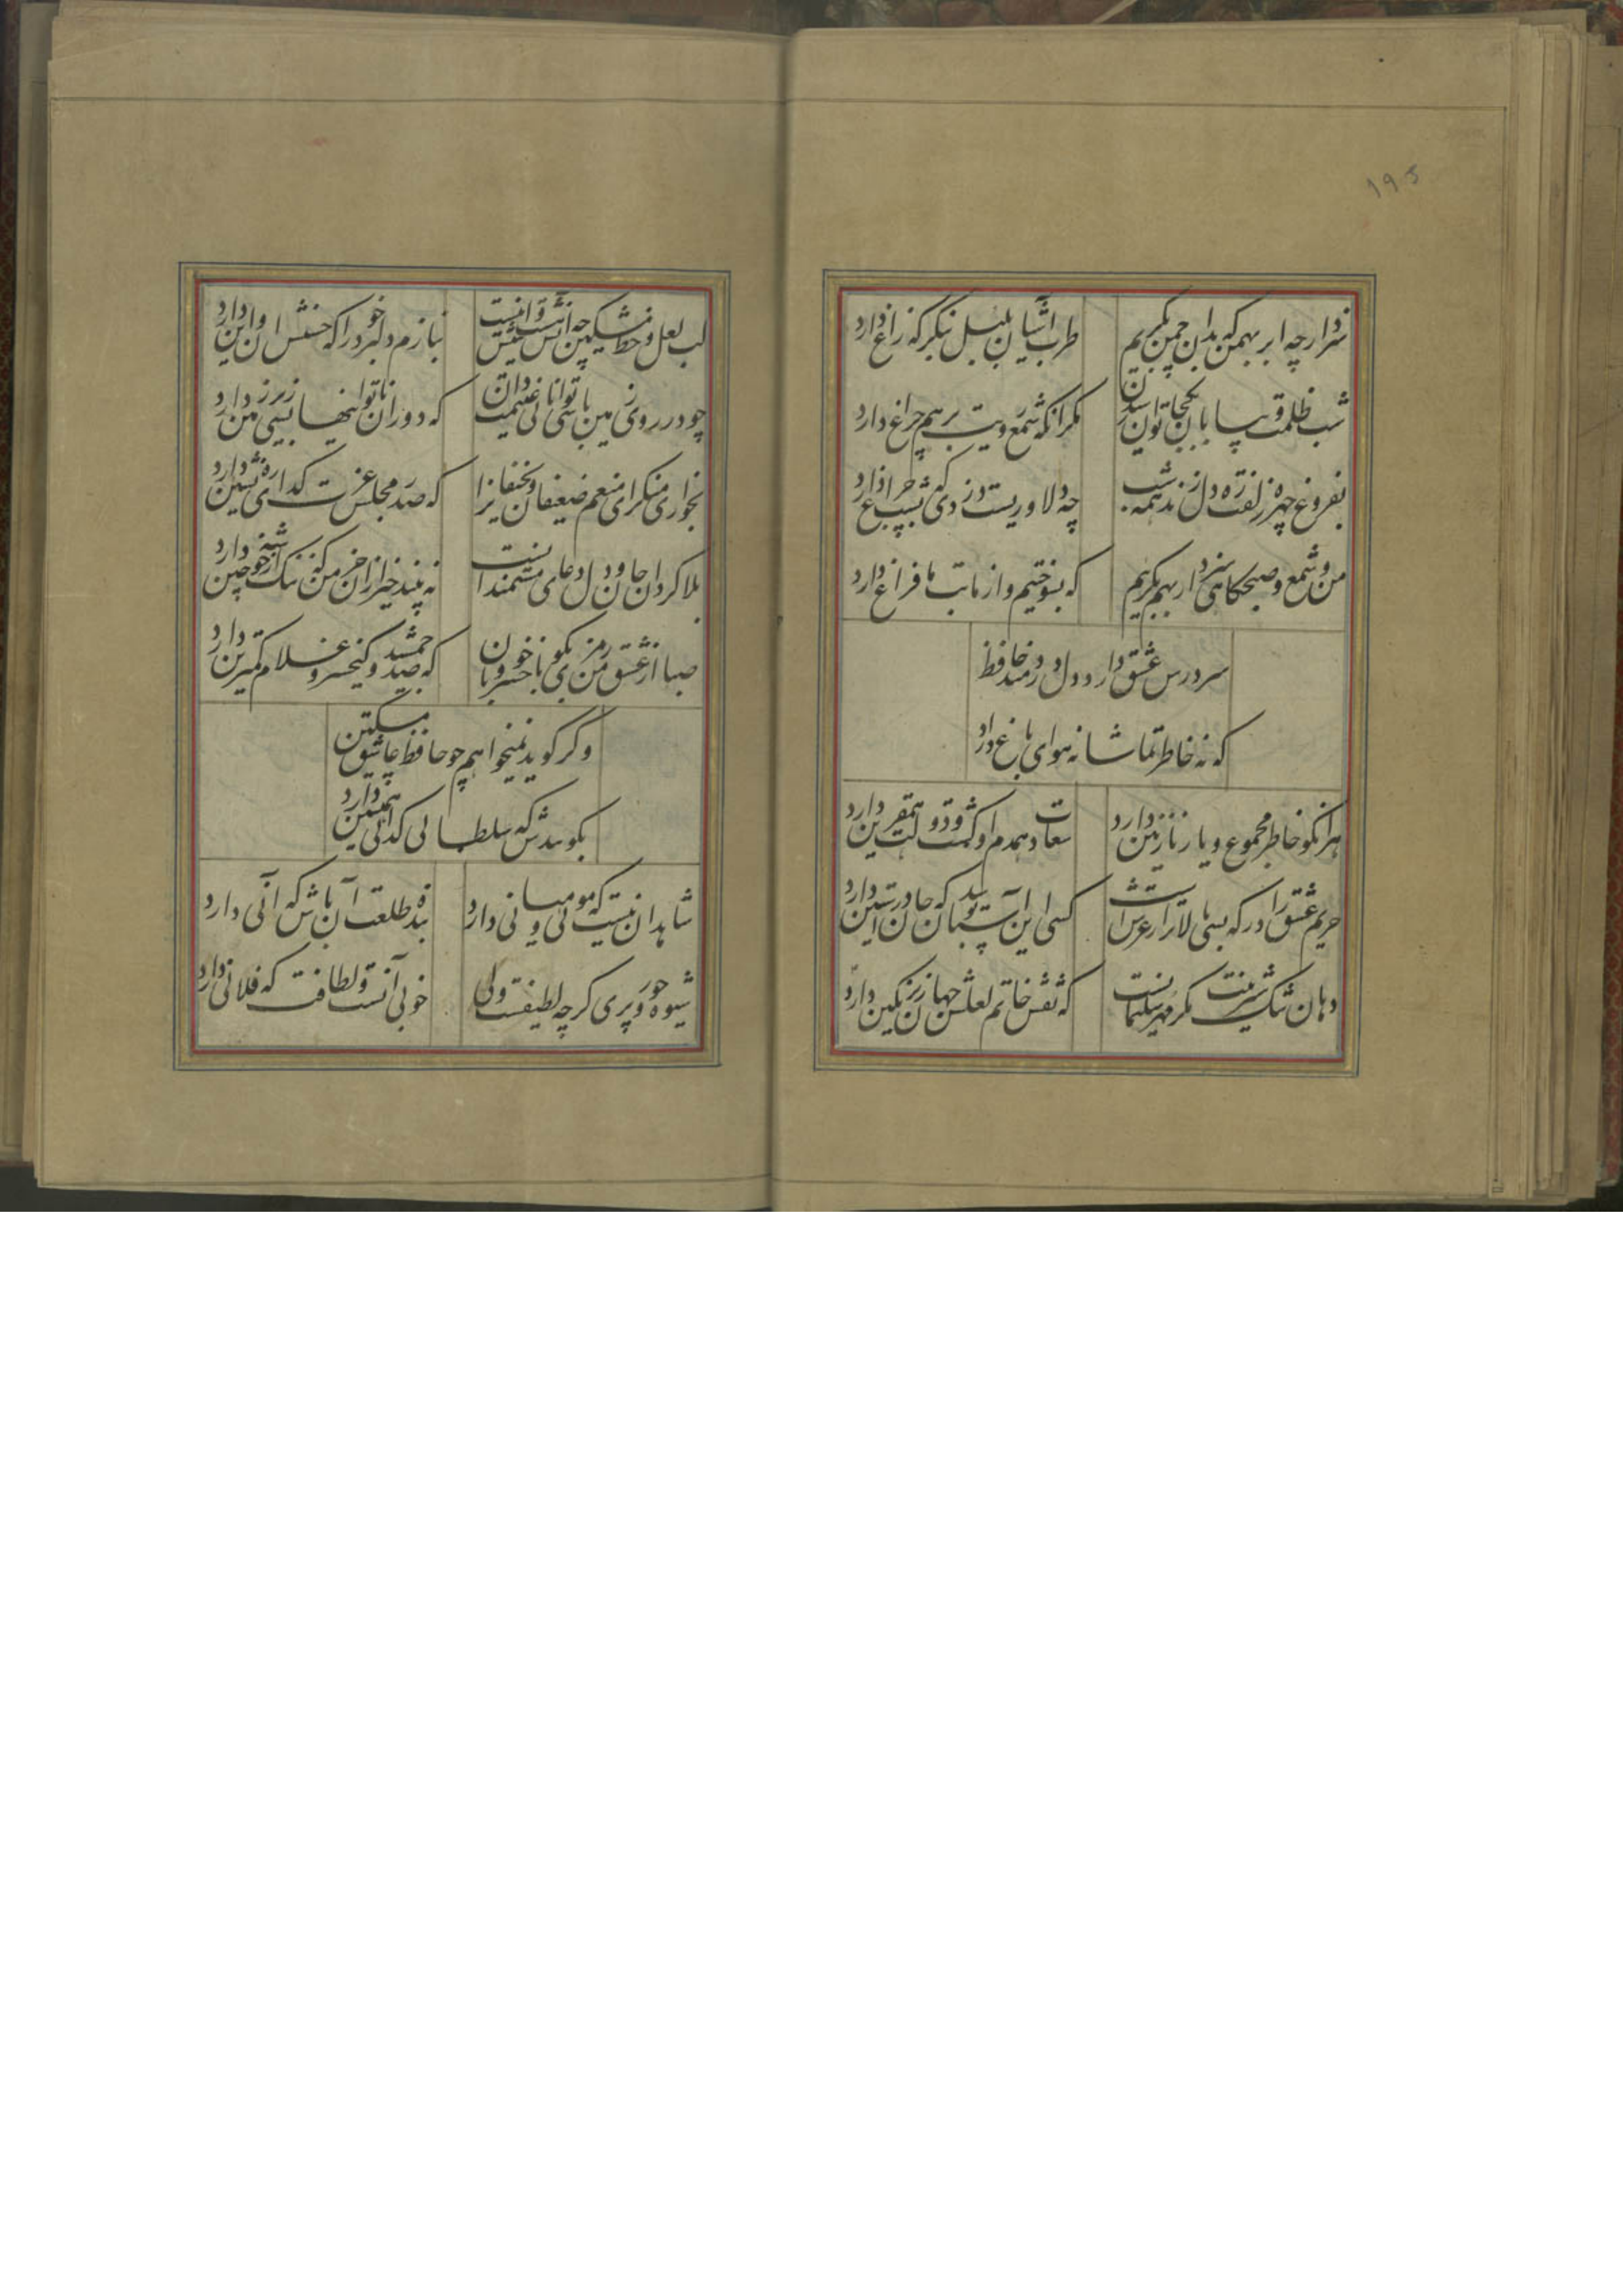 ۱۹۵
سزد ار چه ابر بهمن که بدان چمن بگریم
طرب آشیان بلبل بنگر که زاغ دارد
شب ظلمت و بیابان بکجا توان رسیدن
مگر آنکه شمع رویت برهم چراغ دارد
بفروغ چهره زلفت ره دل زند همه شب
چه دلاورست دزدی که بشب چراغ دارد
من و شمع صبحگاهی سزد ار بهم بگریم
که بسوختیم و از ما بت ما فراغ دارد
سر درس عشق دارد دل دردمند حافظ
که نه خاطر تماشا نه هوای باغ دارد
هر آنکو خاطر مجموع و یار نازنین دارد
سعادت همدم او گشت و دولت همقرین دارد
حریم عشق را درگه بسی بالاتر از عرش است
کسی این آستان بوسد که جان در آستین دارد
دهان تنگ شیرینت مگر مهر سلیمانست
که نقش خاتم لعلش جهان زیر نگین دارد
لب لعل و خط مشکین چو آنش هست و اینش نیست
بنازم دلبر خود را که حسنش آن و این دارد
چو در روی زمین باشی توانایی غنیمت دان
که دوران ناتوانیها بسی زیر زمین دارد
بخواری منگر ای منعم ضعیفان و نحیفانرا
که صدر مجلس عزت گدای ره نشین دارد
بلاگردان جان و دل دعای مستمندانست
نه بیند خیر از آن خرمن که ننگ از خوشه چین دارد
صبا از عشق من رمزی بگو با خسرو خوبان
که صد جمشید و کیخسرو غلام کمترین دارد
و گر گوید نمیخواهم چو حافظ عاشق مسکین
بگوییدش که سلطانی گدایی همنشین دارد
شاهد آن نیست که مویی و میانی دارد
بنده طلعت آن باش که آنی دارد
شیوه حور و پری گرچه لطیفست ولی
خوبی آنست و لطافت که فلانی دارد